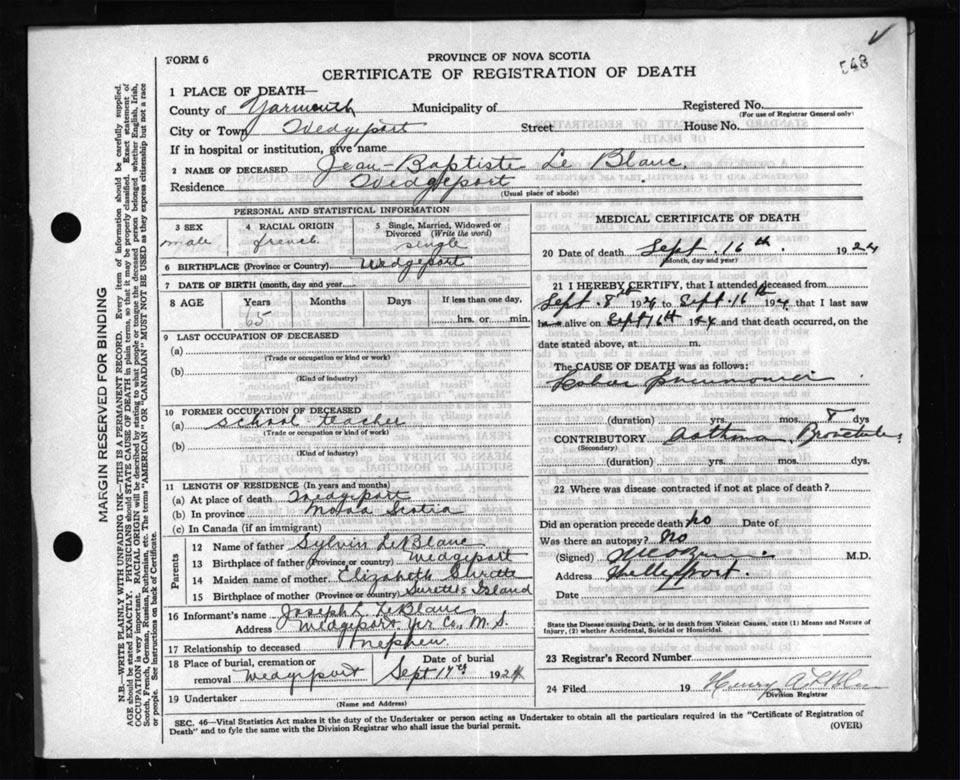 FORM 6
PROVINCE OF NOVA SCOTIA
548
CERTIFICATE OF REGISTRATION OF DEATH
1 PLACE OF DEATH—
County of Yarmouth Municipality of Registered No.
(For use of Registrar General only)
City or Town Wedgeport Street House No.
If in hospital or institution, give name
2 NAME OF DECEASED Jean-Baptiste Le Blanc
Residence Wedgeport
(Usual place of abode)
PERSONAL AND STATISTICAL INFORMATION
3 SEX 4 RACIAL ORIGIN 5 Single, Married, Widowed or Divorced (Write the word)
male french single
6 BIRTHPLACE (Province or Country) Wedgeport
7 DATE OF BIRTH (month, day and year)
8 AGE Years Months Days If less than one day,
65 hrs. or min.
9 LAST OCCUPATION OF DECEASED
(a)
(Trade or occupation or kind of work)
(b)
(Kind of industry)
10 FORMER OCCUPATION OF DECEASED
(a) school teacher
(Trade or occupation or kind of work)
(b)
(Kind of industry)
11 LENGTH OF RESIDENCE (In years and months)
(a) At place of death Wedgeport
(b) In province Nova Scotia
(c) In Canada (if an immigrant)
Parents
12 Name of father Sylvin LeBlanc
13 Birthplace of father (Province or country) Wedgeport
14 Maiden name of mother Elizabeth Surette
15 Birthplace of mother (Province or country) Surettes Island
16 Informant's name Joseph L. LeBlanc
Address Wedgeport Yar Co, N.S.
17 Relationship to deceased nephew
18 Place of burial, cremation or removal Wedgeport Date of burial Sept 17th 1924
19 Undertaker
(Name and Address)
MEDICAL CERTIFICATE OF DEATH
20 Date of death Sept. 16th 1924
(Month, day and year)
21 I HEREBY CERTIFY, that I attended deceased from
Sept. 8th 1924 to Sept. 16th 1924 that I last saw
h alive on Sept 16th 1924 and that death occurred, on the
date stated above, at m.
The CAUSE OF DEATH was as follows:
Lobar Pneumonia
(duration) yrs. mos. 8 dys
CONTRIBUTORY Asthma, Bronchitis
(Secondary)
(duration) yrs. mos. dys.
22 Where was disease contracted if not at place of death?
Did an operation precede death No Date of
Was there an autopsy? No
(Signed) M.D.
Address
Date
State the Disease causing Death, or in death from Violent Causes, state (1) Means and Nature of
Injury, (2) whether Accidental, Suicidal or Homicidal.
23 Registrar's Record Number
24 Filed 19 Henry A LeBlanc
Division Registrar
SEC. 46—Vital Statistics Act makes it the duty of the Undertaker or person acting as Undertaker to obtain all the particulars required in the "Certificate of Registration of
Death" and to fyle the same with the Division Registrar who shall issue the burial permit.
(OVER)
MARGIN RESERVED FOR BINDING
N.B.—WRITE PLAINLY WITH UNFADING INK—THIS IS A PERMANENT RECORD. Every item of information should be carefully supplied.
AGE should be stated EXACTLY. PHYSICIANS should STATE CAUSE OF DEATH in plain terms, so that it may be properly classified. Exact statement of
OCCUPATION is very important. RACIAL ORIGIN will be described by stating to what people or tongue the deceased person belonged whether English, Irish,
Scotch, French, German, Russian, Ruthenian, etc. The terms "AMERICAN" OR "CANADIAN" MUST NOT BE USED as they express citizenship but not a race
or people. See instructions on back of Certificate.